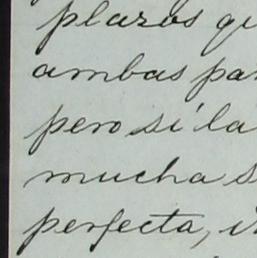 plazos
ambas
pero si la
mucha
perfecta,